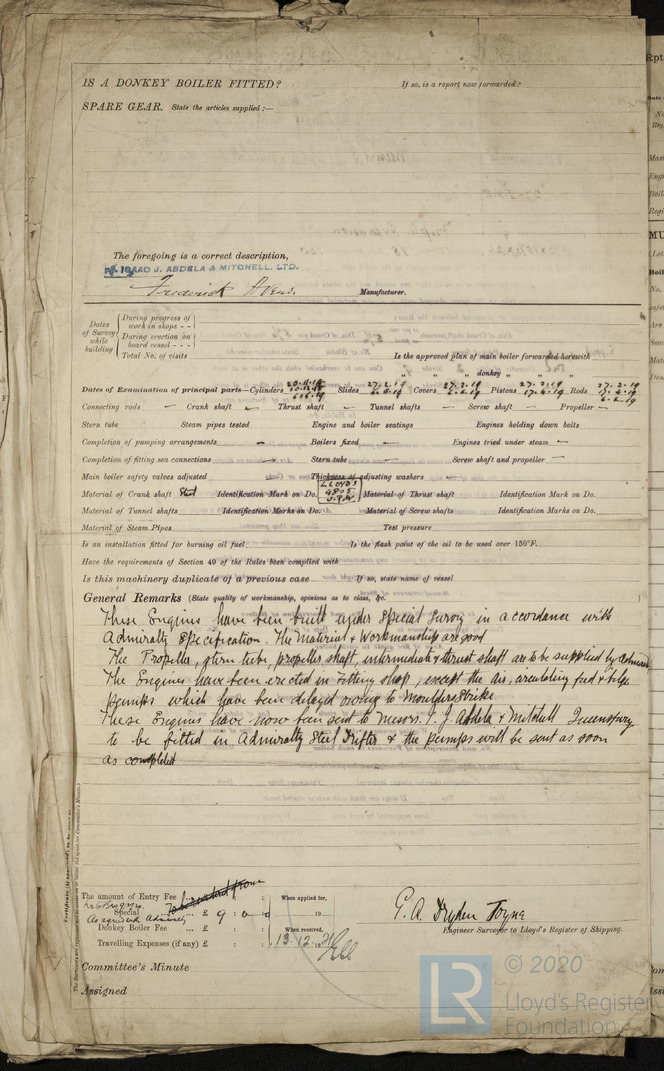 IS A DONKEY BOILER FITTED? If so, is a report now forwarded?
SPARE GEAR. State the articles supplied :—
The foregoing is a correct description,
ISAAC J. ABDELA & MITCHELL, LTD.
Frederick Manufacturer.
Dates of Survey while building
During progress of work in shops - -
During erection on board vessel - - -
Total No. of visits
Is the approved plan of main boiler forwarded herewith
" " " donkey " " "
Dates of Examination of principal parts—Cylinders Slides 27.2.19 Covers 27.2.19 Pistons 27.2.19 Rods 27.2.19
Connecting rods — Crank shaft — Thrust shaft — Tunnel shafts — Screw shaft — Propeller —
Stern tube Steam pipes tested Engine and boiler seatings Engines holding down bolts
Completion of pumping arrangements — Boilers fixed — Engines tried under steam —
Completion of fitting sea connections — Stern tube — Screw shaft and propeller —
Main boiler safety valves adjusted Thickness of adjusting washers
Material of Crank shaft Steel Identification Mark on Do. LLOYDS Material of Thrust shaft Identification Mark on Do.
Material of Tunnel shafts Identification Marks on Do. Material of Screw shafts Identification Marks on Do.
Material of Steam Pipes Test pressure
Is an installation fitted for burning oil fuel Is the flash point of the oil to be used over 150°F.
Have the requirements of Section 49 of the Rules been complied with
Is this machinery duplicate of a previous case If so, state name of vessel
General Remarks (State quality of workmanship, opinions as to class, &c.
These Engines have been built under Special Survey in accordance with
Admiralty Specification. The Material & Workmanship are good
The Propeller, stern tube, propeller shaft, intermediate & thrust shaft are to be supplied by Admiralty
The Engines have been erected in fitting shop, except the Air, circulating feed & bilge
pumps which have been delayed owing to Moulders Strike
These Engines have now been sent to Messrs. I. J. Abdela & Mitchell Queensferry
to be fitted in Admiralty Steel Drifter & the pumps will be sent as soon
as completed
The amount of Entry Fee
Special £ 9 : 0 : 0
As agreed Admiralty
Donkey Boiler Fee £ : :
Travelling Expenses (if any) £ : :
When applied for,
19
When received,
13.12.
G. A. Dryden Toyne
Engineer Surveyor to Lloyd's Register of Shipping.
Committee's Minute
Assigned
LR © 2020
Lloyd's Register
Foundation